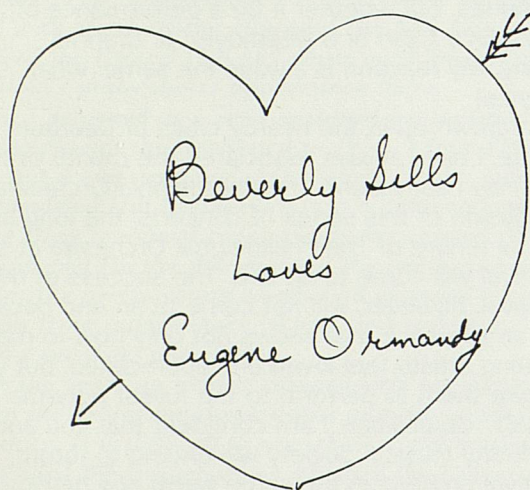 Beverly Sills
Loves
Eugene Ormandy